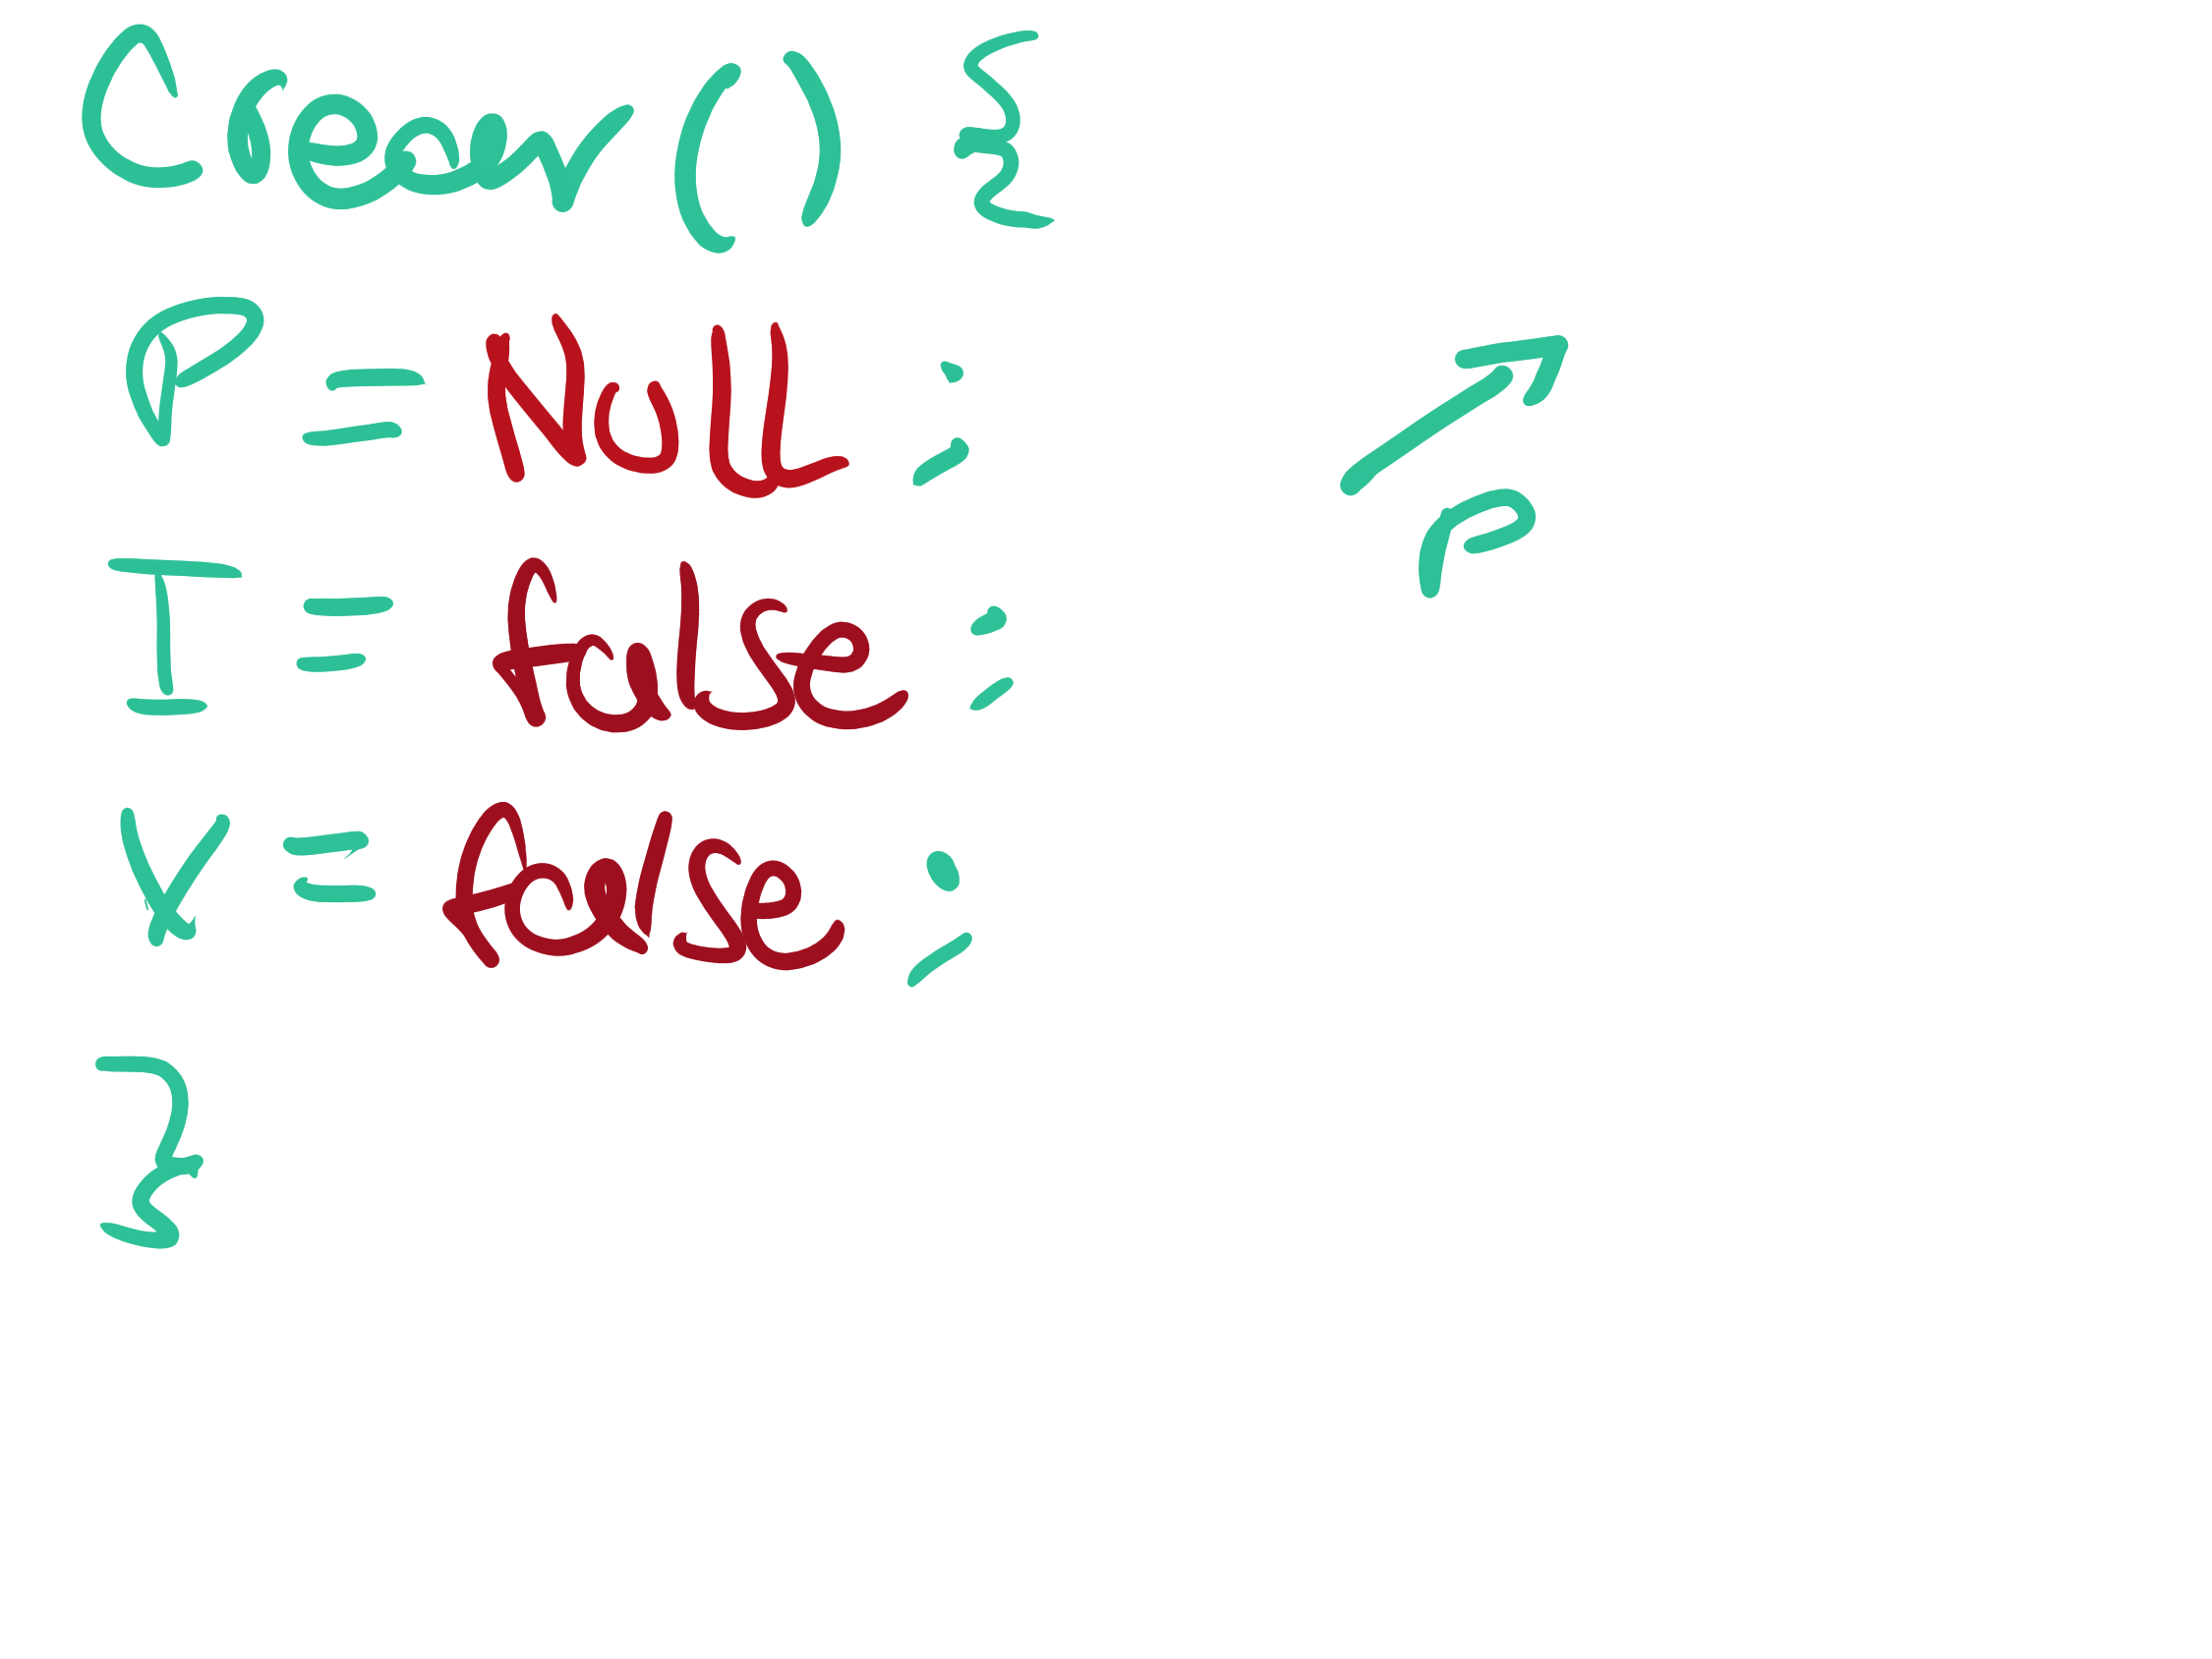 Clear() {
P = NULL;
I = false;
X = false;
}
P